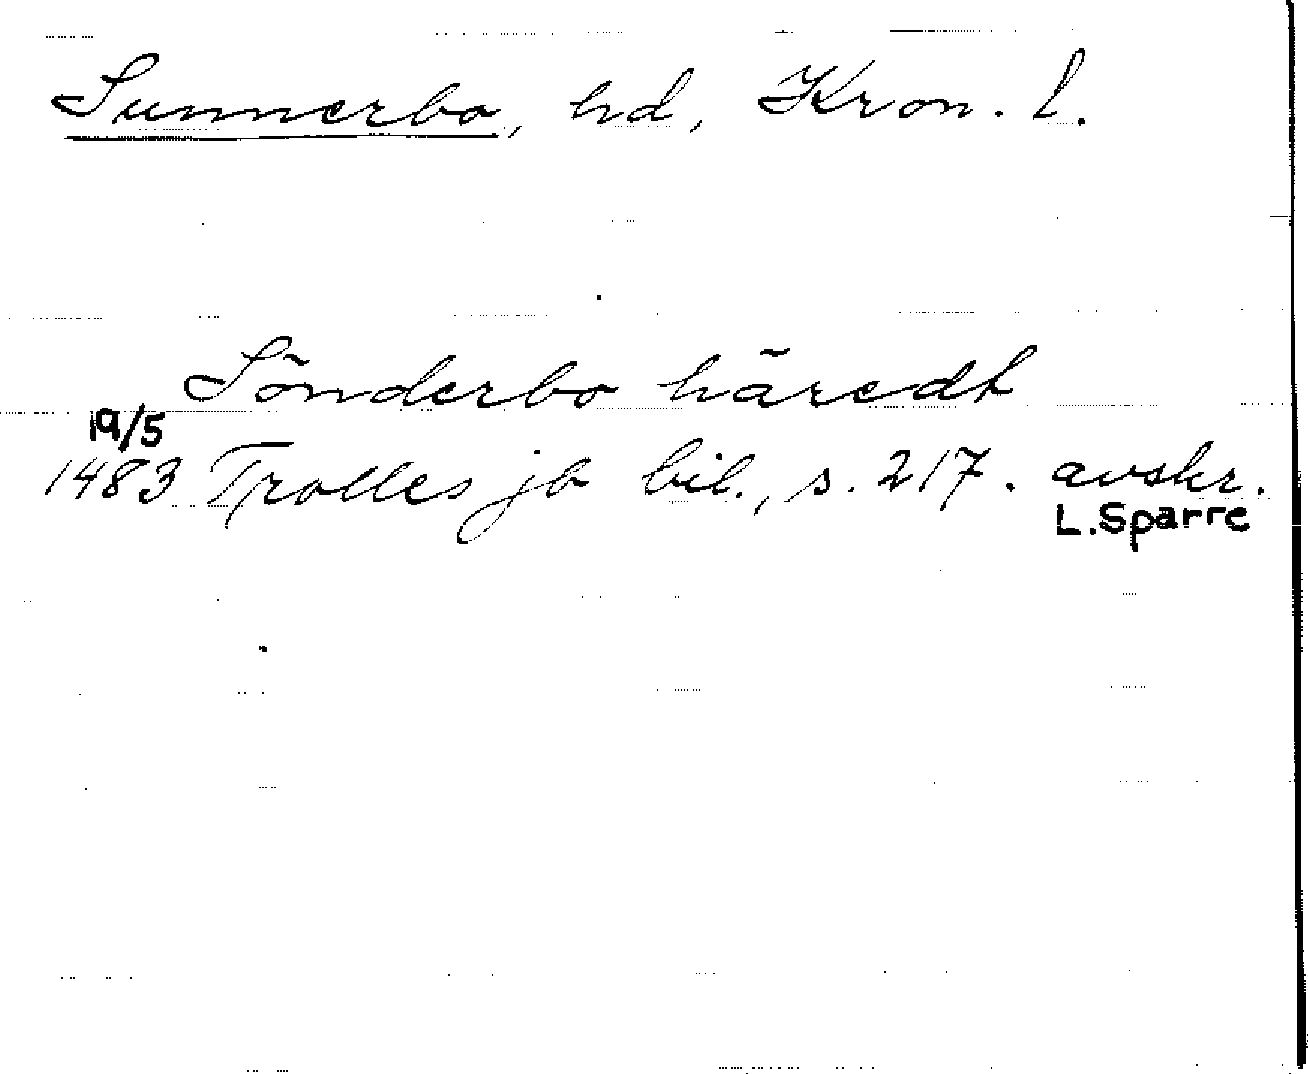 Sunnerbo, hd, Kron. l.
Sönderbo häredt
19/5
1483 Trolles jb bil., s. 217. avskr.
L. Sparre